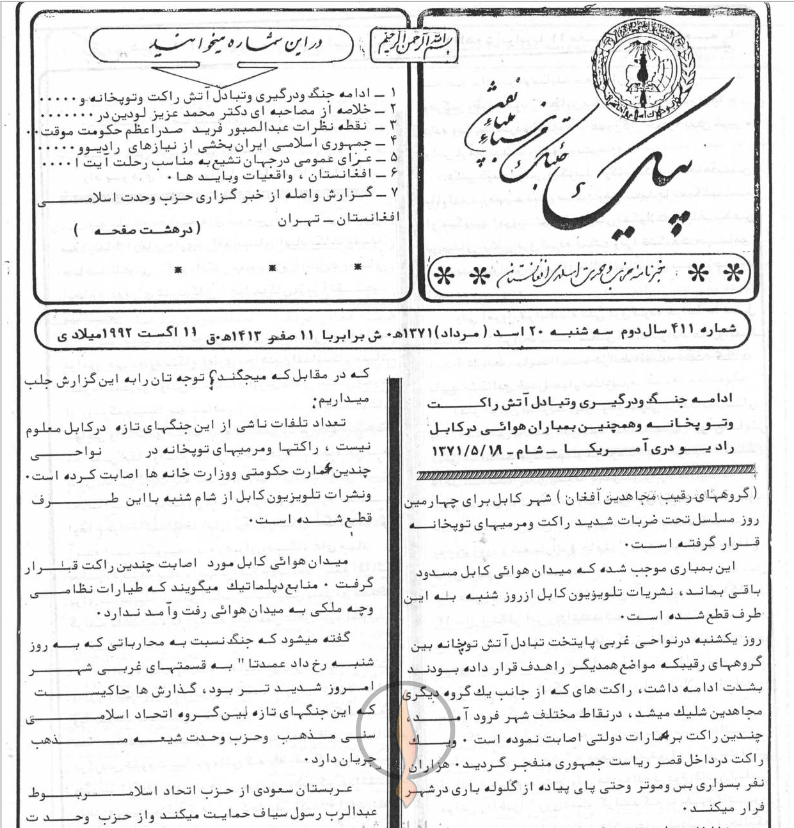 بسم الله الرحمن الرحیم
پیام
خبرنامه حزب وحدت اسلامی افغانستان
در این شماره میخوانید
۱ ـ ادامه جنگ ودرگیری وتبادل آتش راکت وتوپخانه و .....
۲ ـ خلاصه از مصاحبه ای دکتر محمد عزیز لودین در .......
۳ ـ نقطه نظرات عبدالصبور فرید صدراعظم حکومت موقت..
۴ ـ جمهوری اسلامی ایران بخشی از نیازهای رادیوو.....
۵ ـ عزای عمومی درجهان تشیع به مناسب رحلت آیت ا....
۶ ـ افغانستان ، واقعیات وباید ها.
۷ ـ گزارش واصله از خبر گزاری حزب وحدت اسلامی
افغانستان ـ تهران
( در هشت صفحه )
* * *
شماره ۴۱۱ سال دوم سه شنبه ۲۰ اسد ( مرداد) ۱۳۷۱ه.ش برابربا ۱۱ صفر ۱۴۱۳ه.ق ۱۱ اگست ۱۹۹۲میلادی
ادامه جنگ ودرگیری وتبادل آتش راکت
وتوپخانه وهمچنین بمباران هوائی درکابل
رادیو دری آمریکا ـ شام ـ ۱۳۷۱/۵/۱۸
( گروههای رقیب مجاهدین افغان ) شهر کابل برای چهارمین
روز مسلسل تحت ضربات شدید راکت ومرمیهای توپخانه
قرار گرفته است.
این بمباری موجب شده که میدان هوائی کابل مسدود
باقی بماند، نشریات تلویزیون کابل ازروز شنبه به این
طرف قطع شده است.
روز یکشنبه درنواحی غربی پایتخت تبادل آتش توپخانه بین
گروههای رقیبکه مواضع همدیگر راهدف قرار داده بودند
بشدت ادامه داشت، راکت های که از جانب یك گروه دیگری
مجاهدین شلیك میشد، درنقاط مختلف شهر فرود آمد،
چندین راکت برعمارات دولتی اصابت نموده است . ویك
راکت درداخل قصر ریاست جمهوری منفجر گردید. هزاران
نفر بسواری بس وموتر وحتی پای پیاده از گلوله باری درشهر
فرار میکند.
که در مقابل که میجگند؟ توجه تان رابه این گزارش جلب
میداریم:
تعداد تلفات ناشی از این جنگهای تازه درکابل معلوم
نیست ، راکتها ومرمیهای توپخانه در نواحی
چندین عمارت حکومتی ووزارت خانه ها اصابت کرده است.
ونشرات تلویزیون کابل از شام شنبه با این طرف
قطع شده است.
میدان هوائی کابل مورد اصابت چندین راکت قرار
گرفت . منابع دپلماتیك میگویند که طیارات نظامی
وچه ملکی به میدان هوائی رفت وآمد ندارد.
گفته میشود که جنگ نسبت به محارباتی که به روز
شنبه رخ داد عمدتا" به قسمتهای غربی شهر
امروز شدید تر بود، گذارش ها حاکیست
که این جنگهای تازه بین گروه اتحاد اسلامی
سنی مذهب وحزب وحدت شیعه مذهب
جریان دارد.
عربستان سعودی از حزب اتحاد اسلام مربوط
عبدالرب رسول سیاف حمایت میکند واز حزب وحدت